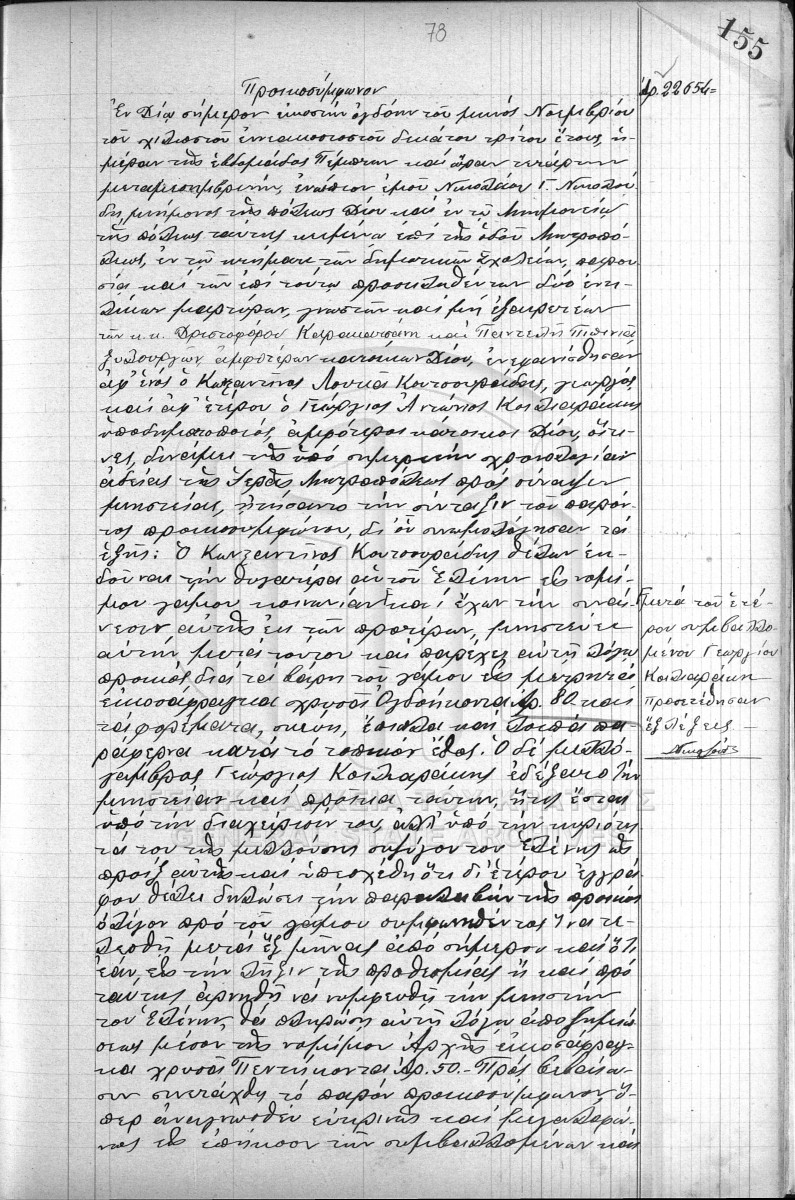 78
155
Προικοσύμφωνον
Ἀρ. 22654=
Ἐν Δίῳ σήμερον εἰκοστὴν ὀγδόην τοῦ μηνός Νοεμβρίου
τοῦ χιλιοστοῦ ἐννεακοσιοστοῦ δεκάτου τρίτου ἔτους, ἡ-
μέραν τῆς ἑβδομάδος Πέμπτην καί ὥραν τετάρτην
μεταμεσημβρινήν, ἐνώπιον ἐμοῦ Νικολάου Γ. Νικολαΐ-
δη, μνήμονος τῆς πόλεως Δίου καί ἐν τῷ Μνημονείῳ
τῆς πόλεως ταύτης κειμένῳ ἐπί τῆς ὁδοῦ Μητροπό-
λεως, ἐν τῷ κτήματι τῶν δημοτικῶν Σχολείων, παρου-
σίᾳ καί τῶν ἐπί τούτῳ προσκληθέντων δύο ἐντε-
λίκων μαρτύρων, γνωστῶν καί μή ἐξαιρετέων
τῶν κ.κ. Χριστοφόρου Καρακατσάνη καί Παντελῆ
ξυλουργῶν ἀμφοτέρων κατοίκων Δίου, ἐνεφανίσθησαν
ἀφ' ἑνός ὁ Κωνσταντῖνος Λουκᾶ Κουτσουραΐδης, γεωργός
καί ἀφ' ἑτέρου ὁ Γεώργιος Ἀντώνιος Κοιλιαράκης
ὑποδηματοποιός, ἀμφότεροι κάτοικοι Δίου, οἵτι-
νες, δυνάμει τῆς ὑπό σημερινήν χρονολογίαν
ἀδείας τῆς Ἱερᾶς Μητροπόλεως πρός σύναψιν
μνηστείας, ᾐτήσαντο τήν σύνταξιν τοῦ παρόν-
τος προικοσυμφώνου, δι' οὗ συνωμολόγησαν τά
ἑξῆς: Ὁ Κωνσταντῖνος Κουτσουραΐδης θέλων ἐκ-
δοῦναι τήν θυγατέρα αὐτοῦ Ἑλένην εἰς νομί-
μου γάμου κοινωνίαν Γ καί ἔχων τήν συναί-
νεσιν αὐτῆς ἐκ τῶν προτέρων, μνηστεύει
αὐτήν μετά τούτου καί παρέχει αὐτῇ λόγῳ
προικός διά τά βάρη τοῦ γάμου εἰς μετρητά
εἰκοσάφραγκα χρυσᾶ Ὀγδοήκοντα Ἀρ. 80 καί
τά φορέματα, σκεύη, ἔπιπλα καί λοιπά πα-
ράφερνα κατά τό τοπικόν ἔθος. Ὁ δέ μελλό-
γαμβρος Γεώργιος Κοιλιαράκης ἐδέξατο τήν
μνηστείαν καί προῖκα ταύτην, ἥτις ἔσται
ὑπό τήν διαχείρισίν του, ἀλλ' ὑπό τήν κυριότη-
τά του τῆς μελλούσης συζύγου του Ἑλένης ὡς
προίξ αὐτῆς καί ὑπεσχέθη ὅτι δι' ἑτέρου ἐγγρά-
φου θέλει δηλώσει τήν παραλαβήν τῆς προικός
ὀλίγον πρό τοῦ γάμου συμφωνηθέντος ἵνα τε-
λεσθῇ μετά ἕξ μῆνας ἀπό σήμερον καί ὅτι
ἐάν εἰς τήν λῆξιν τῆς προθεσμίας ἤ καί πρό
ταύτης ἀρνηθῇ νά νυμφευθῇ τήν μνηστήν
του Ἑλένην, θά πληρώσῃ αὐτῇ λόγῳ ἀποζημιώ-
σεως μέσον τῆς νομίμου Ἀρχῆς εἰκοσάφραγ-
κα χρυσᾶ Πεντήκοντα Ἀρ. 50.- Πρός βεβαίω-
σιν συνετάχθη τό παρόν προικοσύμφωνον, ὅ-
περ ἀναγνωσθέν εὐκρινῶς καί μεγαλοφώ-
νως εἰς ἐπήκοον τῶν συμβαλλομένων καί
Γ μετά τοῦ ἑτέ-
ρου συμβαλλο-
μένου Γεωργίου
Κοιλιαράκη
προσετέθησαν
ἕξ λέξεις -
ΓΕΝΙΚΑ ΑΡΧΕΙΑ ΤΟΥ ΚΡΑΤΟΥΣ
GENERAL STATE ARCHIVES